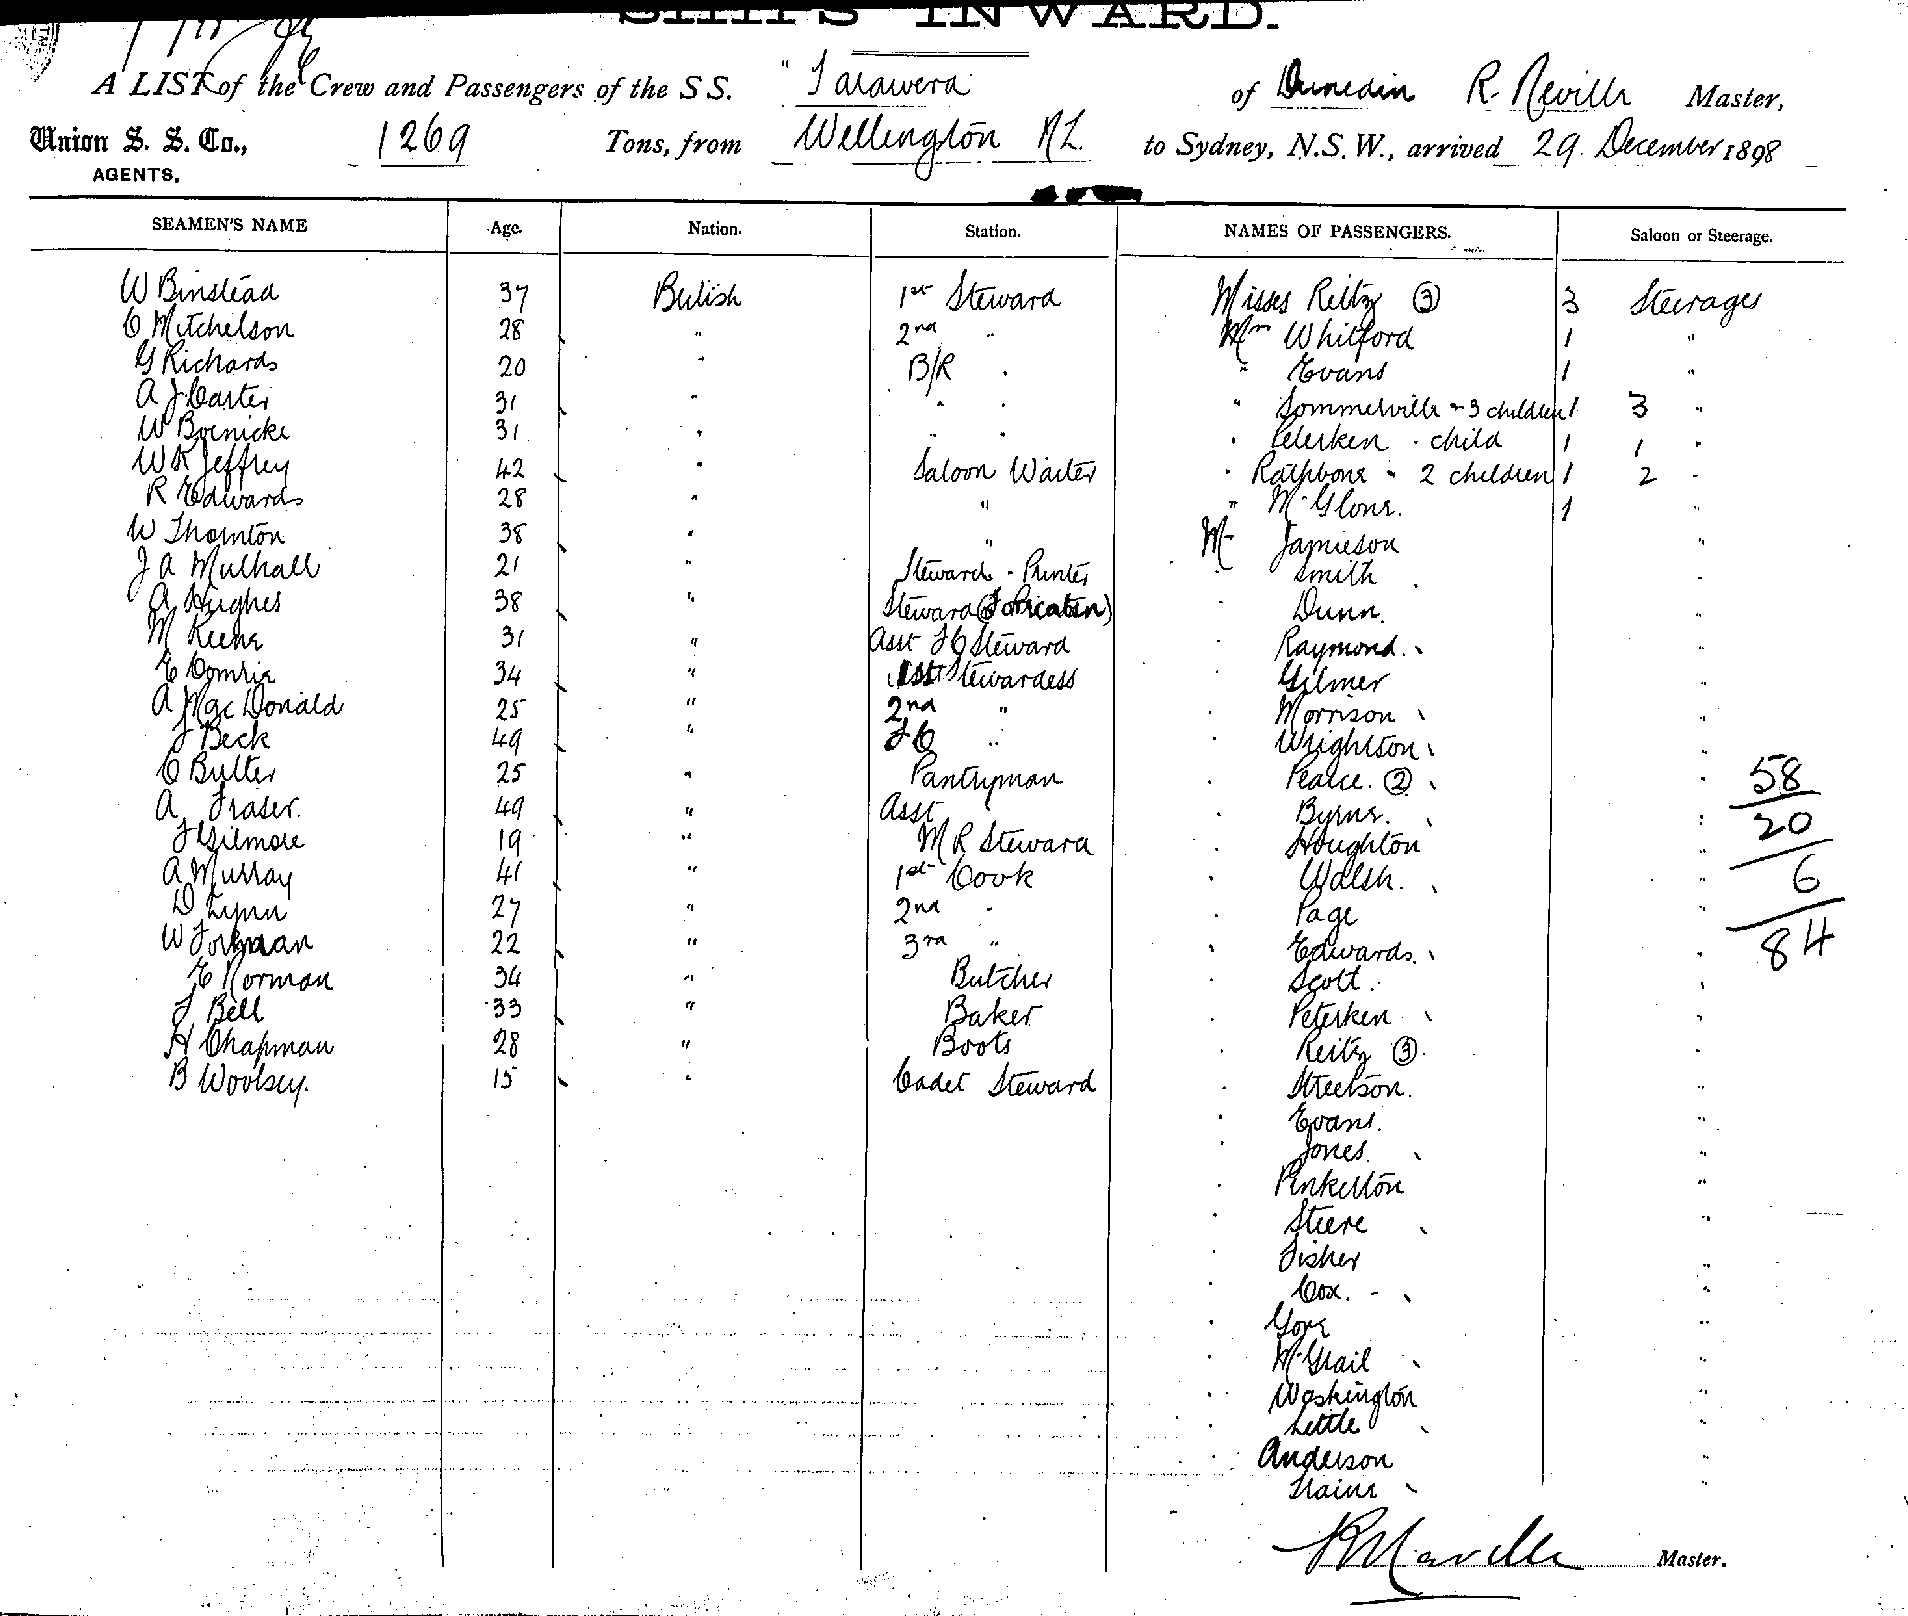 SHIPS INWARD.
A LIST of the Crew and Passengers of the S S. "Tarawera of Dunedin R. Neville Master,
Union S. S. Co., 1269 Tons, from Wellington NZ. to Sydney, N.S.W., arrived 29. December 1898
AGENTS,
SEAMEN'S NAME Age. Nation. Station. NAMES OF PASSENGERS. Saloon or Steerage.
W Binstead 37 British 1st Steward Misses Reitz ③ 3 Steerage
C Mitchelson 28 " 2nd " Mrs Whitford 1 "
G Richards 20 " B/R . " Evans 1 "
A J Carter 31 " " . " Sommerville - 3 children 1 3 "
W Boenicke 31 " " . " Peterken . child 1 1 "
W R Jeffrey 42 " Saloon Waiter " Rathbone " 2 children 1 2 "
R Edwards 28 " " " McGlone. 1 "
W Thornton 38 " " Mr Jamieson "
J A Mulhall 21 " Steward - Printer " Smith "
A Hughes 38 " Steward " Dunn. "
M Keene 31 " Asst F C Steward " Raymond. "
E Comrie 34 " 1st Stewardess " Gilmer "
A MacDonald 25 " 2nd " " Morrison "
J Beck 49 " F C " " Wrighton "
C Butter 25 " Pantryman " Pearce. ② " 58
A Fraser. 49 " Asst " Byrne. " 20
J Gilmore 19 " M R Steward " Houghton "
A Murray 41 " 1st Cook " Walsh. " 6
D Lynn 27 " 2nd " " Page "
W 22 " 3rd " " Edwards. " 84
E Norman 34 " Butcher " Scott. "
J Bell 33 " Baker " Peterken "
H Chapman 28 " Boots " Reitz ③. "
B Woolsey. 15 " Cadet Steward " Streetson. "
" Evans. "
" Jones. "
" Pinkerton "
" Steere "
" Fisher "
" Cox. "
" Gore "
" McGrail "
" Washington "
" Little "
" Anderson "
" "
R Neville Master.